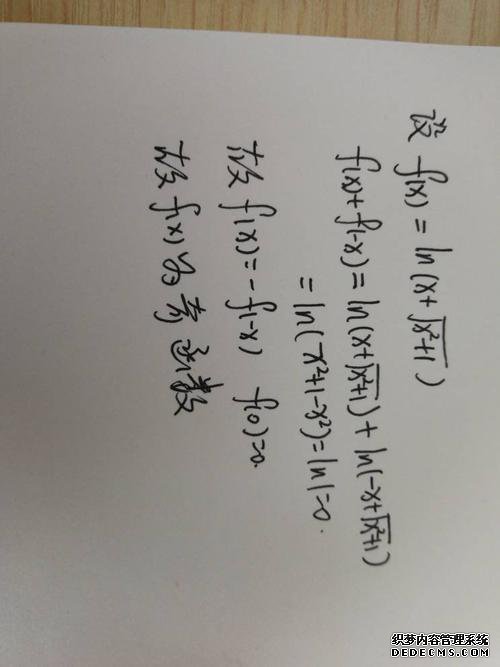 设 f(x) = ln(x+√x²+1)
f(x)+f(-x) = ln(x+√x²+1) + ln(-x+√x²+1)
= ln(x²+1-x²)=ln1=0.
故 f(x)=-f(-x) f(0)=0.
故 f(x) 为奇函数
织梦内容管理系统
DEDECMS.COM